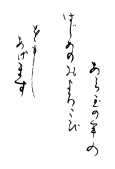 あら玉の年の
はじめのおよろこび
を申し
あげます